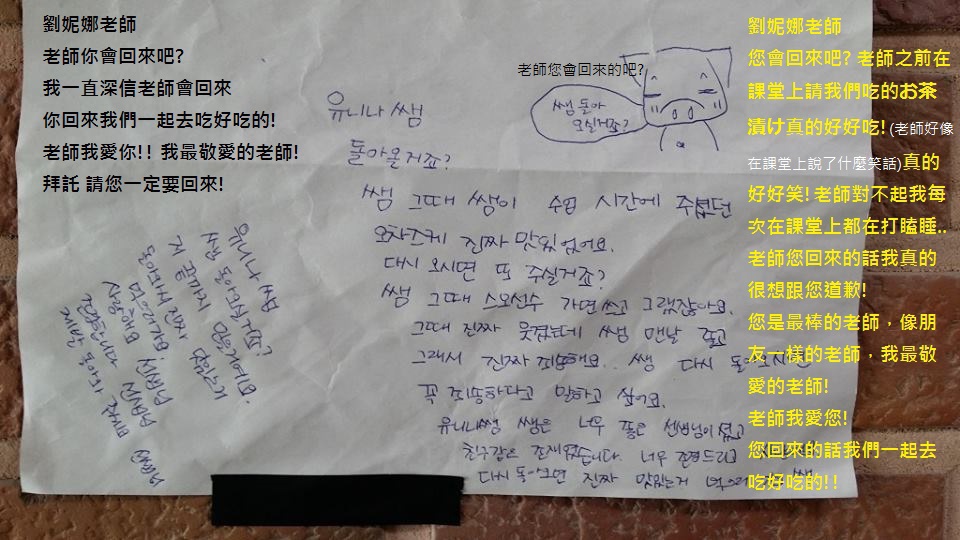 劉妮娜老師
老師你會回來吧?
我一直深信老師會回來
你回來我們一起去吃好吃的!
老師我愛你!! 我最敬愛的老師!
拜託 請您一定要回來!
老師您會回來的吧?
쌤 돌아
오실거죠?
유니나 쌤
돌아올거죠?
쌤 그때 쌤이 수업 시간에 주셨던
오차즈케 진짜 맛있었어요.
다시 오시면 또 주실거죠?
쌤 그때 스모선수 가면 쓰고 그랬잖아요.
그때 진짜 웃겼는데 쌤 맨날 졸고
그래서 진짜 죄송해요.. 쌤 다시 돌아오시면
꼭 죄송하다고 말하고 싶어요.
유니나쌤 쌤은 너무 좋은 선생님이셨고
친구같은 존재였습니다. 너무 존경드리고
다시 돌아오면 진짜 맛있는거
유니나 쌤
쌤 돌아오실거죠?
저 끝까지 믿을거예요.
돌아와서 진짜 맛있는거
먹으러가요. 쌤
사랑해요 쌤
제발 돌아와
劉妮娜老師
您會回來吧? 老師之前在
課堂上請我們吃的お茶
漬け真的好好吃! (老師好像
在課堂上說了什麼笑話)真的
好好笑! 老師對不起我每
次在課堂上都在打瞌睡..
老師您回來的話我真的
很想跟您道歉!
您是最棒的老師，像朋
友一樣的老師，我最敬
愛的老師!
老師我愛您!
您回來的話我們一起去
吃好吃的!!